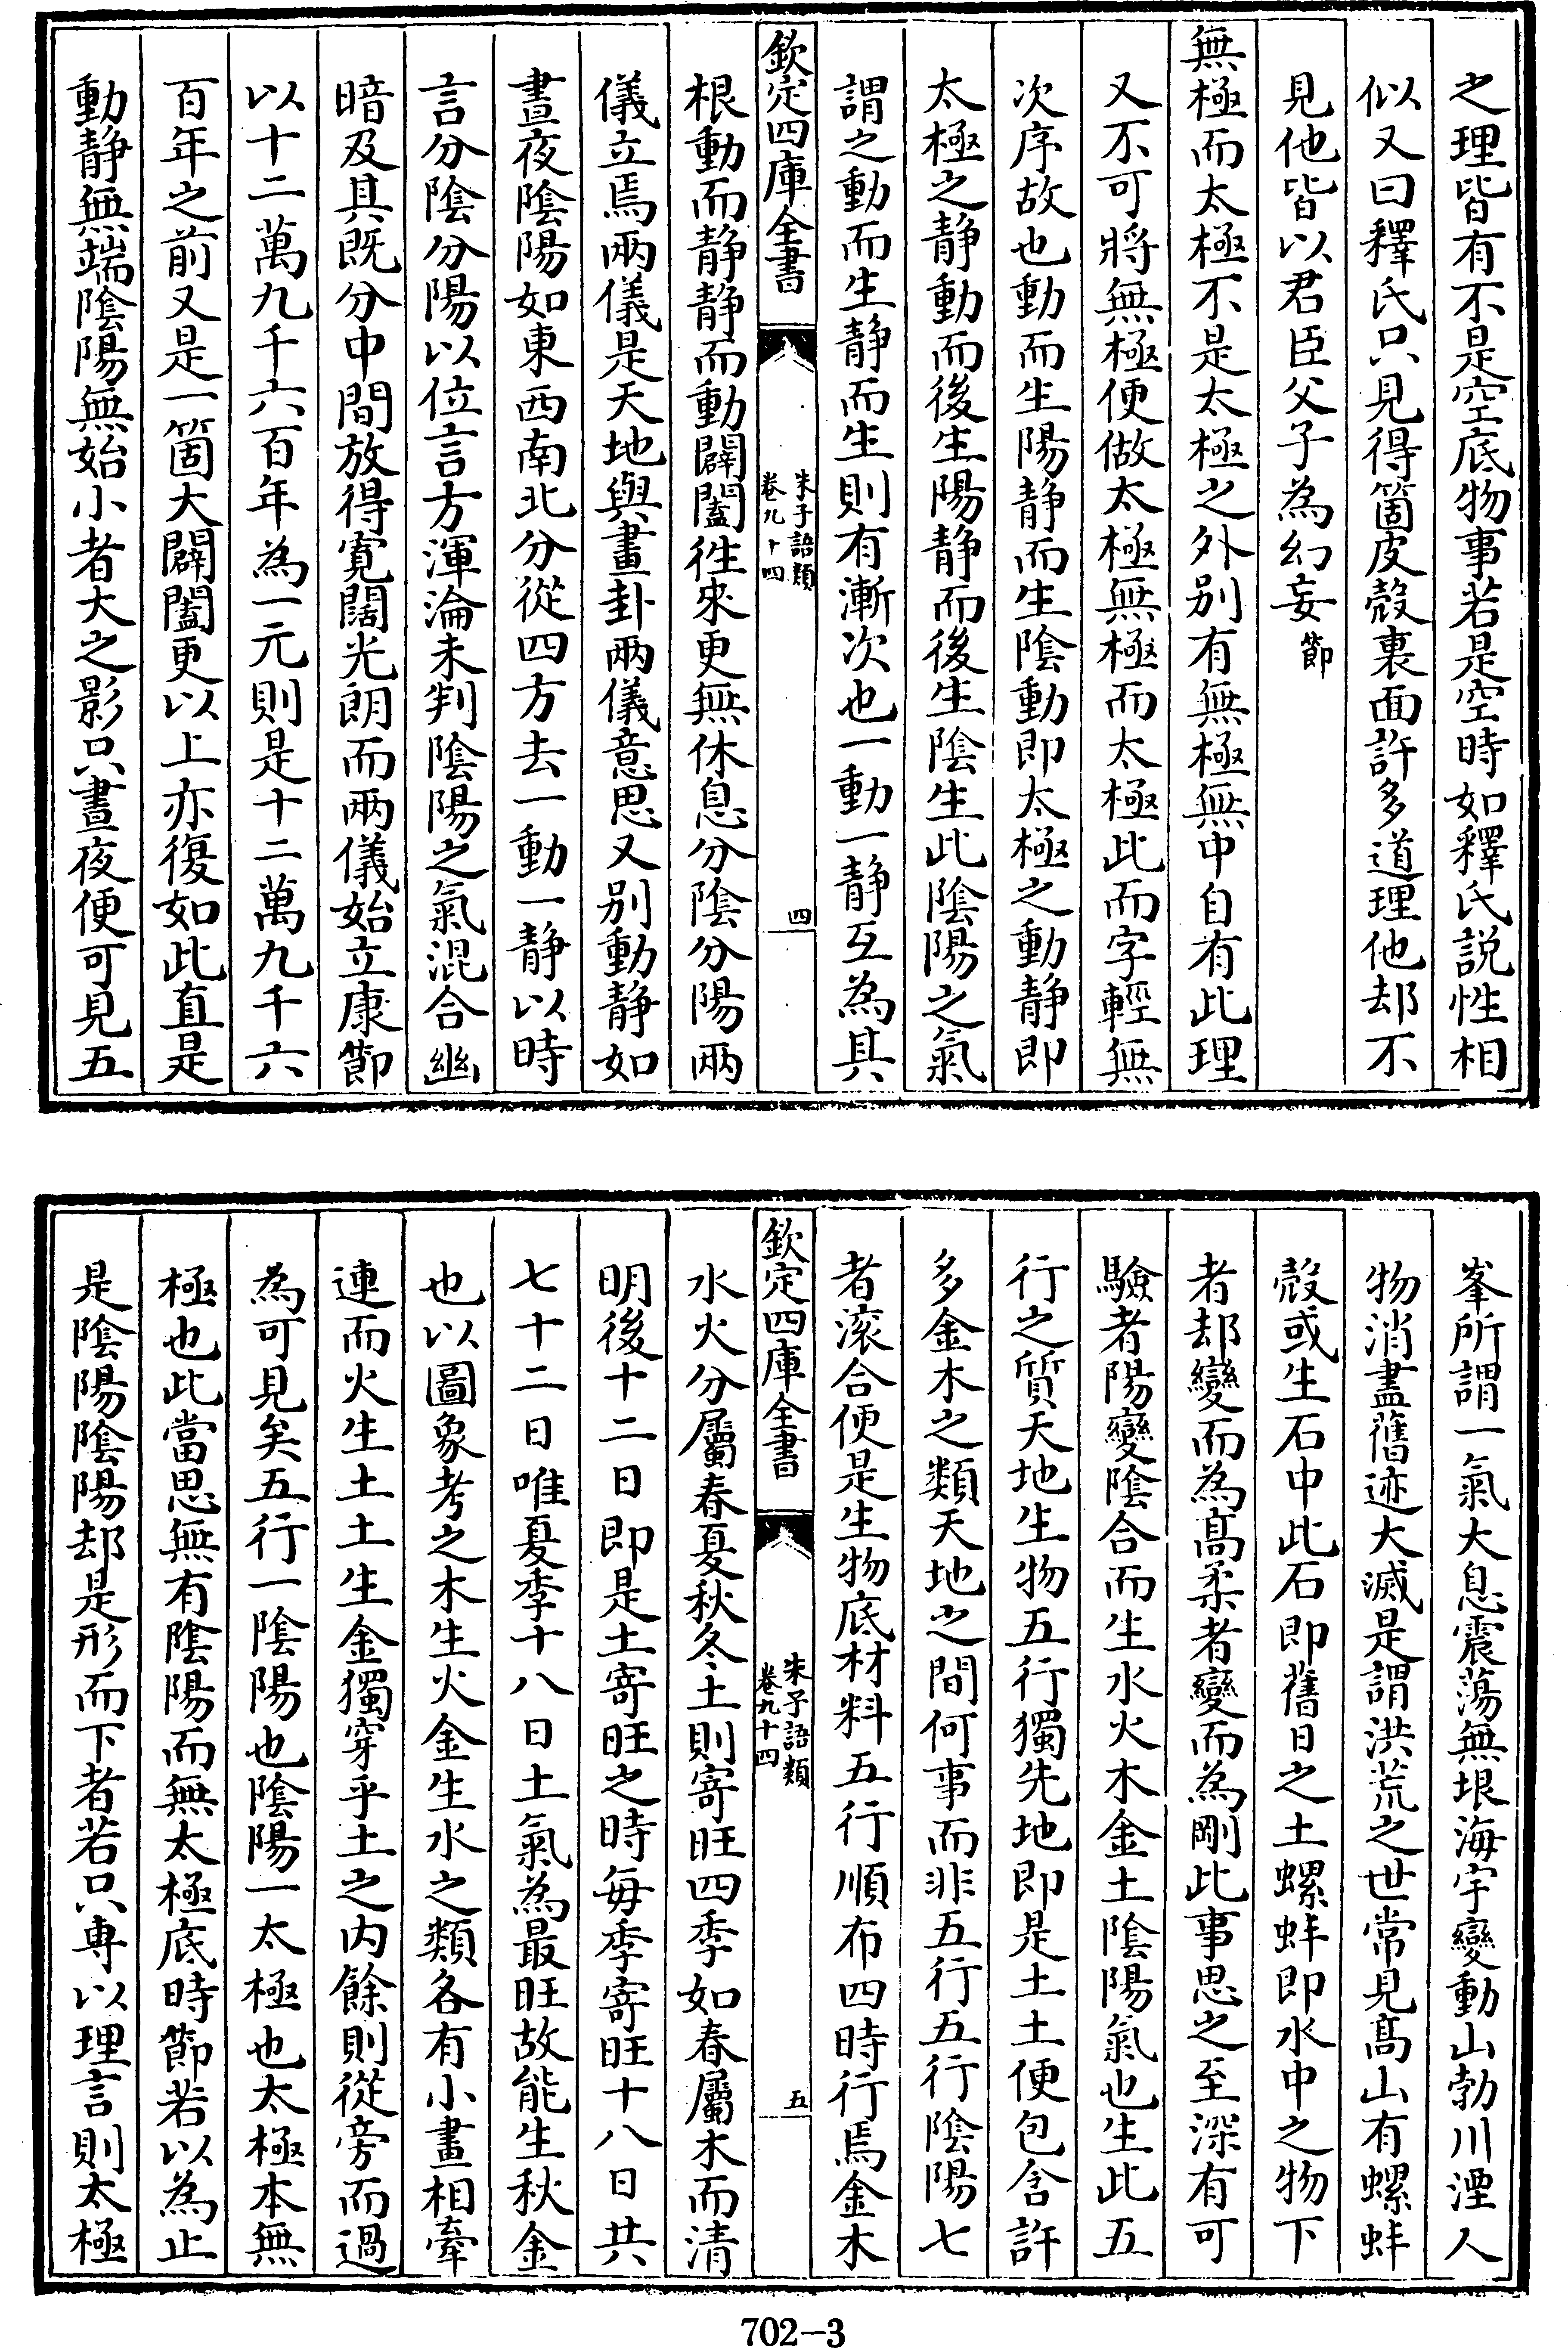 之理皆有不是空底物事若是空時如釋氏説性相
似又曰釋氏只見得箇皮殻裏面許多道理他却不
見他皆以君臣父子為幻妄節
無極而太極不是太極之外别有無極無中自有此理
又不可將無極便做太極無極而太極此而字輕無
次序故也動而生陽静而生陰動即太極之動静即
太極之静動而後生陽静而後生陰生此陰陽之氣
謂之動而生静而生則有漸次也一動一静互為其
欽定四庫全書
朱子語類
卷九十四
四
根動而静静而動闢闔徃來更無休息分陰分陽兩
儀立焉兩儀是天地與畫卦兩儀意思又别動静如
晝夜陰陽如東西南北分從四方去一動一静以時
言分陰分陽以位言方渾淪未判陰陽之氣混合幽
暗及其既分中間放得寛濶光朗而兩儀始立康節
以十二萬九千六百年為一元則是十二萬九千六
百年之前又是一箇大闢闔更以上亦復如此直是
動静無端陰陽無始小者大之影只晝夜便可見五
峯所謂一氣大息震蕩無垠海宇變動山勃川湮人
物消盡舊迹大滅是謂洪荒之世常見髙山有螺蚌
殻或生石中此石即舊日之土螺蚌即水中之物下
者却變而為髙柔者變而為剛此事思之至深有可
驗者陽變陰合而生水火木金土陰陽氣也生此五
行之質天地生物五行獨先地即是土土便包含許
多金木之類天地之間何事而非五行五行陰陽七
者滚合便是生物底材料五行順布四時行焉金木
欽定四庫全書
朱子語類
卷九十四
五
水火分屬春夏秋冬土則寄旺四季如春屬木而清
明後十二日即是土寄旺之時每季寄旺十八日共
七十二日唯夏季十八日土氣為最旺故能生秋金
也以圖象考之木生火金生水之類各有小畫相牽
連而火生土土生金獨穿乎土之内餘則從旁而過
為可見矣五行一陰陽也陰陽一太極也太極本無
極也此當思無有陰陽而無太極底時節若以為止
是陰陽陰陽却是形而下者若只専以理言則太極
702-3